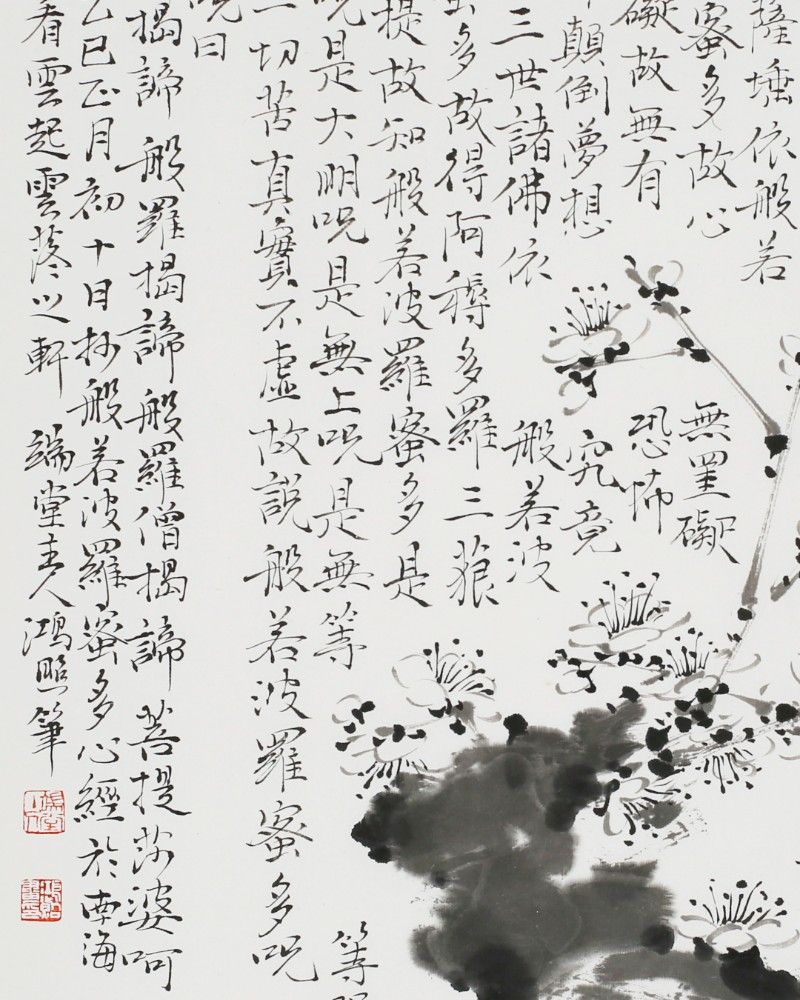 薩埵依般若
蜜多故心無罣礙
礙故無有恐怖
顛倒夢想究竟
三世諸佛依般若波
多故得阿耨多羅三藐
提故知般若波羅蜜多是
呪是大明呪是無上呪是無等等
一切苦真實不虛故說般若波羅蜜多呪
呪曰
揭諦般羅揭諦般羅僧揭諦菩提莎婆呵
乙巳正月初十日抄般若波羅蜜多心經於南海
看雲起雲落之軒 端堂主人鴻照筆